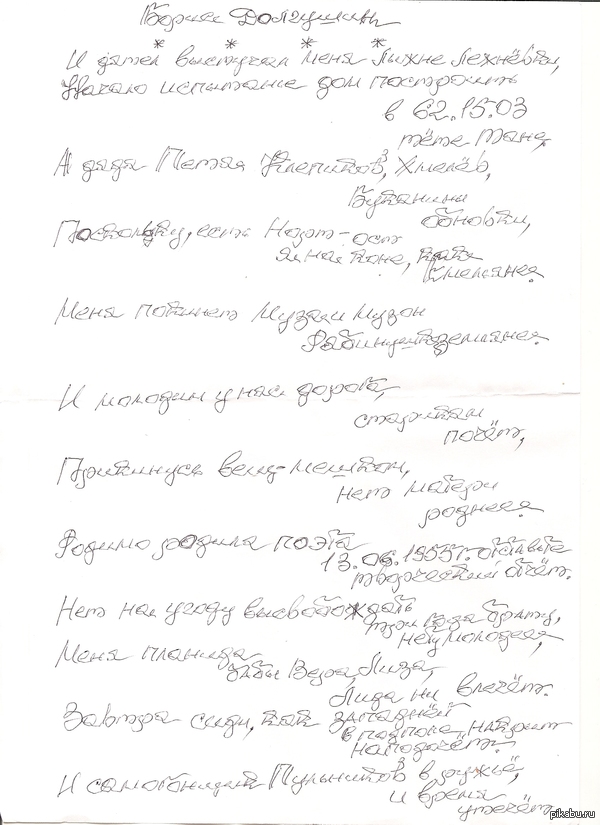 Борис Долгушин
И дятел выстукал меня Лыжне Лежнёвки,
Начало испытание дом построить
в 62.15.03
тёте Тане,
А дядя Петя Клепиков, Хмелёв,
Буканины
обновки,
Поскольку, есть Норт-ост
Я, на коне, как
Емельяне.
Меня покинет Муза и Музон
Рабиндеграземляне.
И молодым у нас дорога,
старикам
почёт,
Прикинусь вещ-мешком,
нет матери
роднее.
Родимо родила поэта
13.06.1955г. оставьте
творческий отчёт.
Нет нам угоду высвобождать
три раза брать,
не молодея,
Меня планида
кабы Вера, Лиза,
Лиза ни влечёт.
Завтра сиди, как западнёй
в подполе, накроет
наподочёт.
И самогонщик Пульников в ружьё,
и время
утечёт.
pikabu.ru